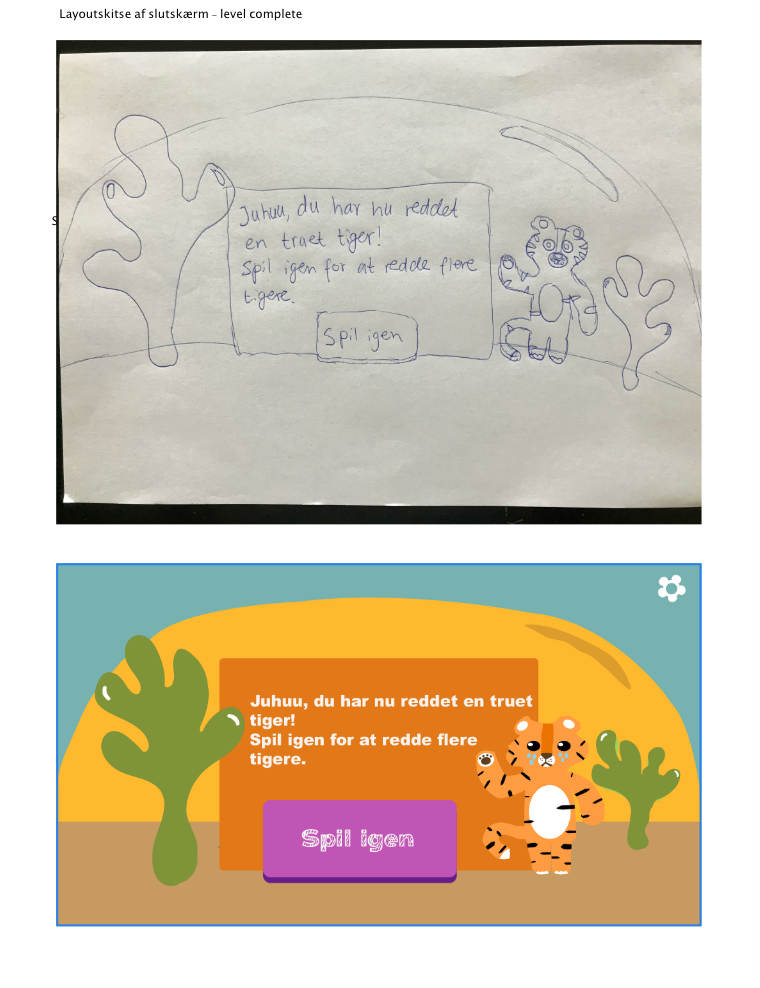 Layoutskitse af slutskærm – level complete
Juhuu, du har nu reddet
en truet tiger!
Spil igen for at redde flere
tigere.
Spil igen
Juhuu, du har nu reddet en truet
tiger!
Spil igen for at redde flere
tigere.
Spil igen